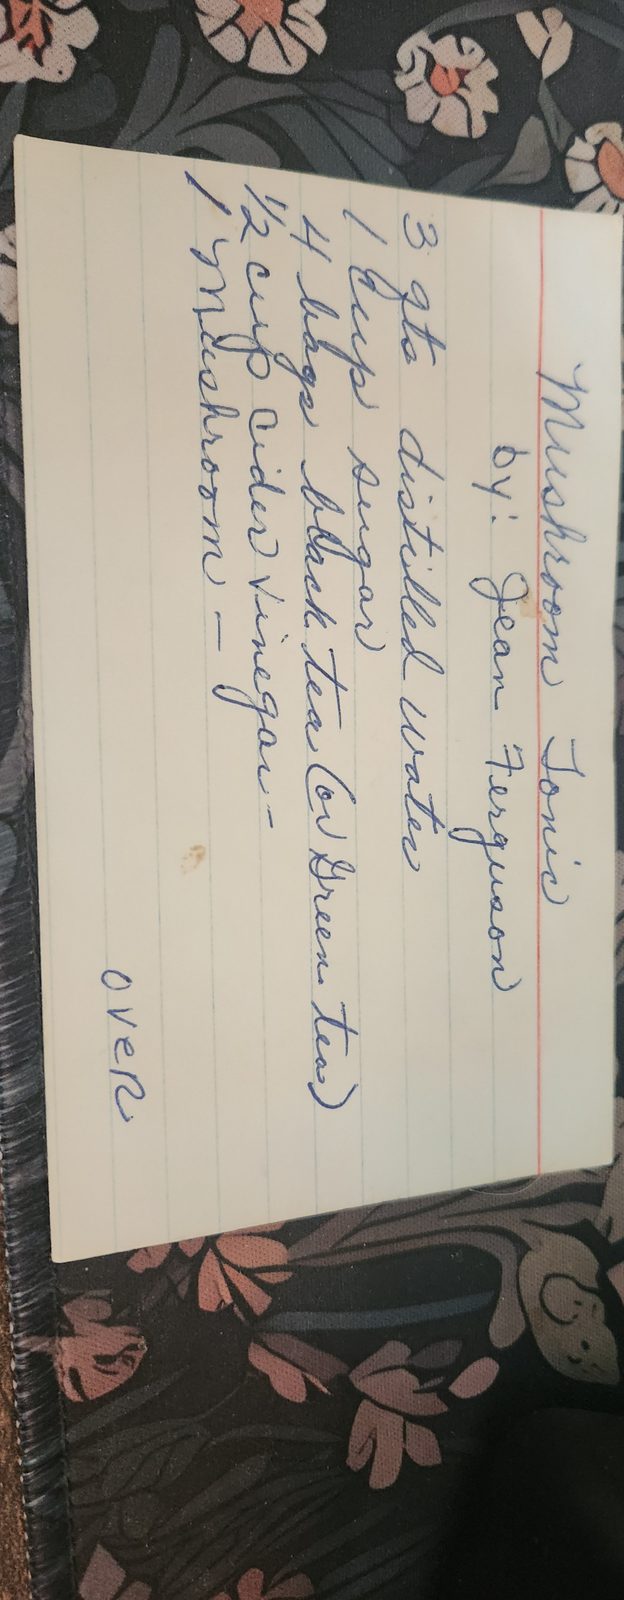 Mushroom Tonic
by: Jean Ferguson
3 qts distilled water
1 Cup sugar
4 bags black tea (or Green tea)
1/2 cup cider vinegar -
1 Mushroom -
OVER